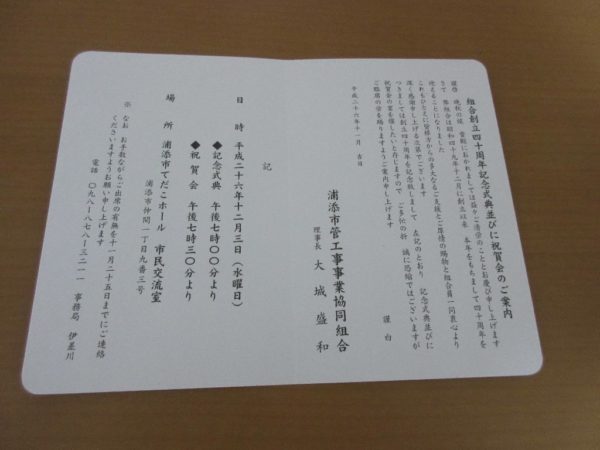 組合創立四十周年記念式典並びに祝賀会のご案内
謹啓 晩秋の候 貴殿におかれましては益々ご清栄のこととお慶び申し上げます
さて 弊組合は昭和四十九年十二月に創立以来 本年をもちまして四十周年を
迎えることになりました
これもひとえに皆様方からの多大なるご支援とご厚情の賜物と組合員一同衷心より
深く感謝申し上げる次第でございます
つきましては創立四十周年を記念致しまして 左記のとおり 記念式典並びに
祝賀会の宴を催したいと存じますので ご多忙の折 誠に恐縮ではございますが
ご臨席の栄を賜りますようご案内申し上げます
謹白
平成二十六年十一月 吉日
浦添市管工事事業協同組合
理事長 大城盛和
記
日時 平成二十六年十二月三日(水曜日)
◆記念式典 午後七時〇〇分より
◆祝賀会 午後七時三〇分より
場所 浦添市てだこホール 市民交流室
浦添市仲間一丁目九番三号
※ なお お手数ながらご出席の有無を十一月二十五日までにご連絡
くださいますようお願い申し上げます
電話 〇九八-八七八-三二一一 事務局 伊差川